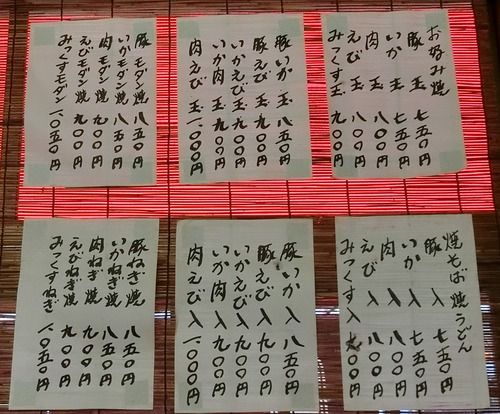 お好み焼
豚 玉 七五〇円
いか 玉 七五〇円
肉 玉 八〇〇円
えび 玉 八〇〇円
みっくす玉 九〇〇円
豚いか 玉 八五〇円
豚えび 玉 九〇〇円
いかえび 玉 九〇〇円
いか肉 玉 九〇〇円
肉えび 玉 一、〇〇〇円
豚モダン焼 八五〇円
いかモダン焼 八五〇円
肉モダン焼 九〇〇円
えびモダン焼 九〇〇円
みっくすモダン 一、〇五〇円
焼そば焼うどん
豚 入 七五〇円
いか 入 七五〇円
肉 入 八〇〇円
えび 入 八〇〇円
みっくす入 九〇〇円
豚いか 入 八五〇円
豚えび 入 九〇〇円
いかえび 入 九〇〇円
いか肉 入 九〇〇円
肉えび 入 一、〇〇〇円
豚ねぎ焼 八五〇円
いかねぎ焼 八五〇円
肉ねぎ焼 九〇〇円
えびねぎ焼 九〇〇円
みっくすねぎ 一、〇五〇円